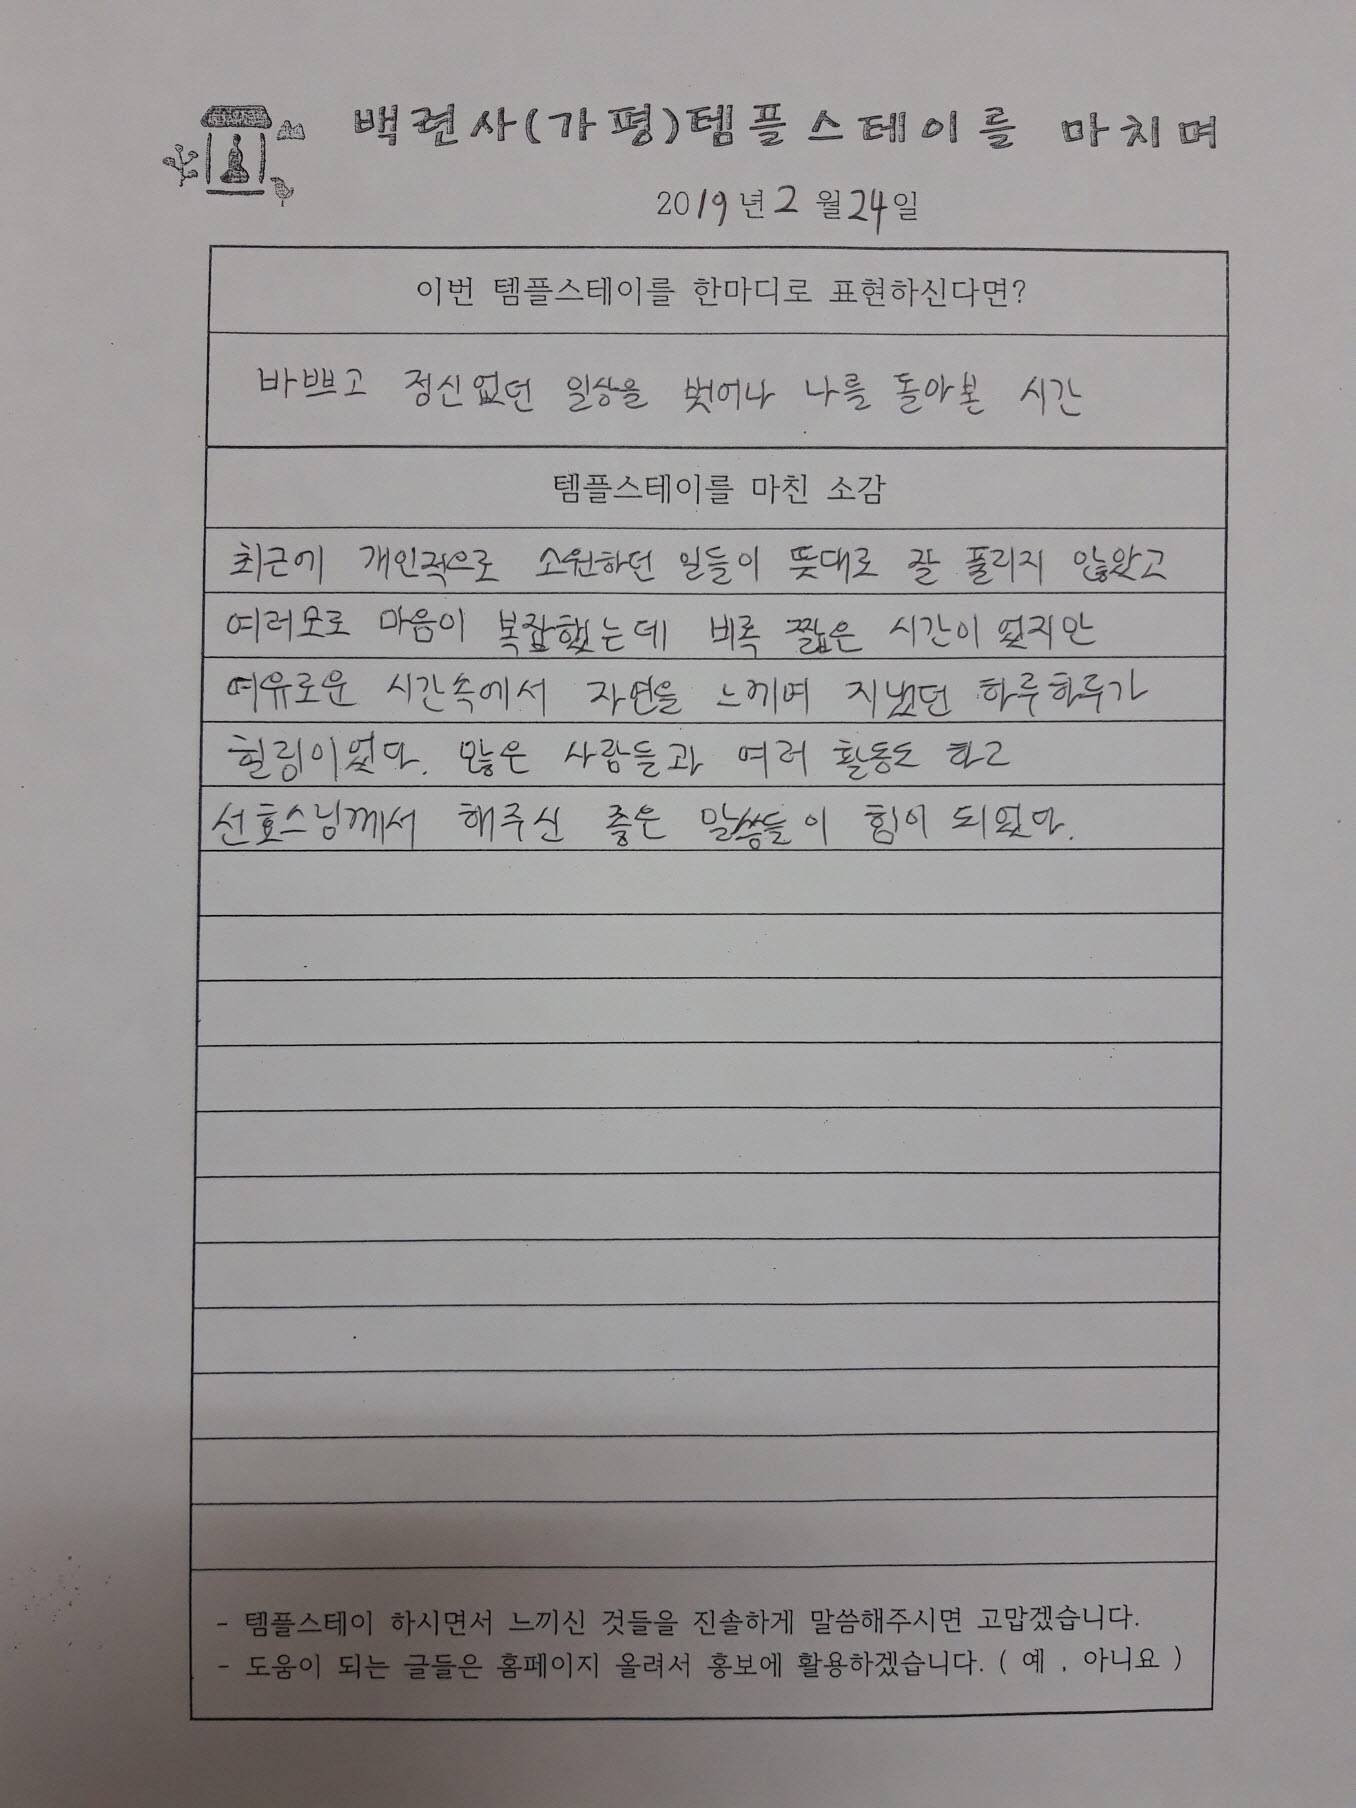 백련사(가평)템플스테이를 마치며
2019년 2월 24일
이번 템플스테이를 한마디로 표현하신다면?
바쁘고 정신없던 일상을 벗어나 나를 돌아본 시간
템플스테이를 마친 소감
최근에 개인적으로 소원하던 일들이 뜻대로 잘 풀리지 않았고
여러모로 마음이 복잡했는데 비록 짧은 시간이었지만
여유로운 시간속에서 자연을 느끼며 지냈던 하루하루가
힐링이었다. 많은 사람들과 여러 활동도 하고
선호스님께서 해주신 좋은 말씀들이 힘이 되었다.
- 템플스테이 하시면서 느끼신 것들을 진솔하게 말씀해주시면 고맙겠습니다.
- 도움이 되는 글들은 홈페이지 올려서 홍보에 활용하겠습니다. ( 예 , 아니요 )